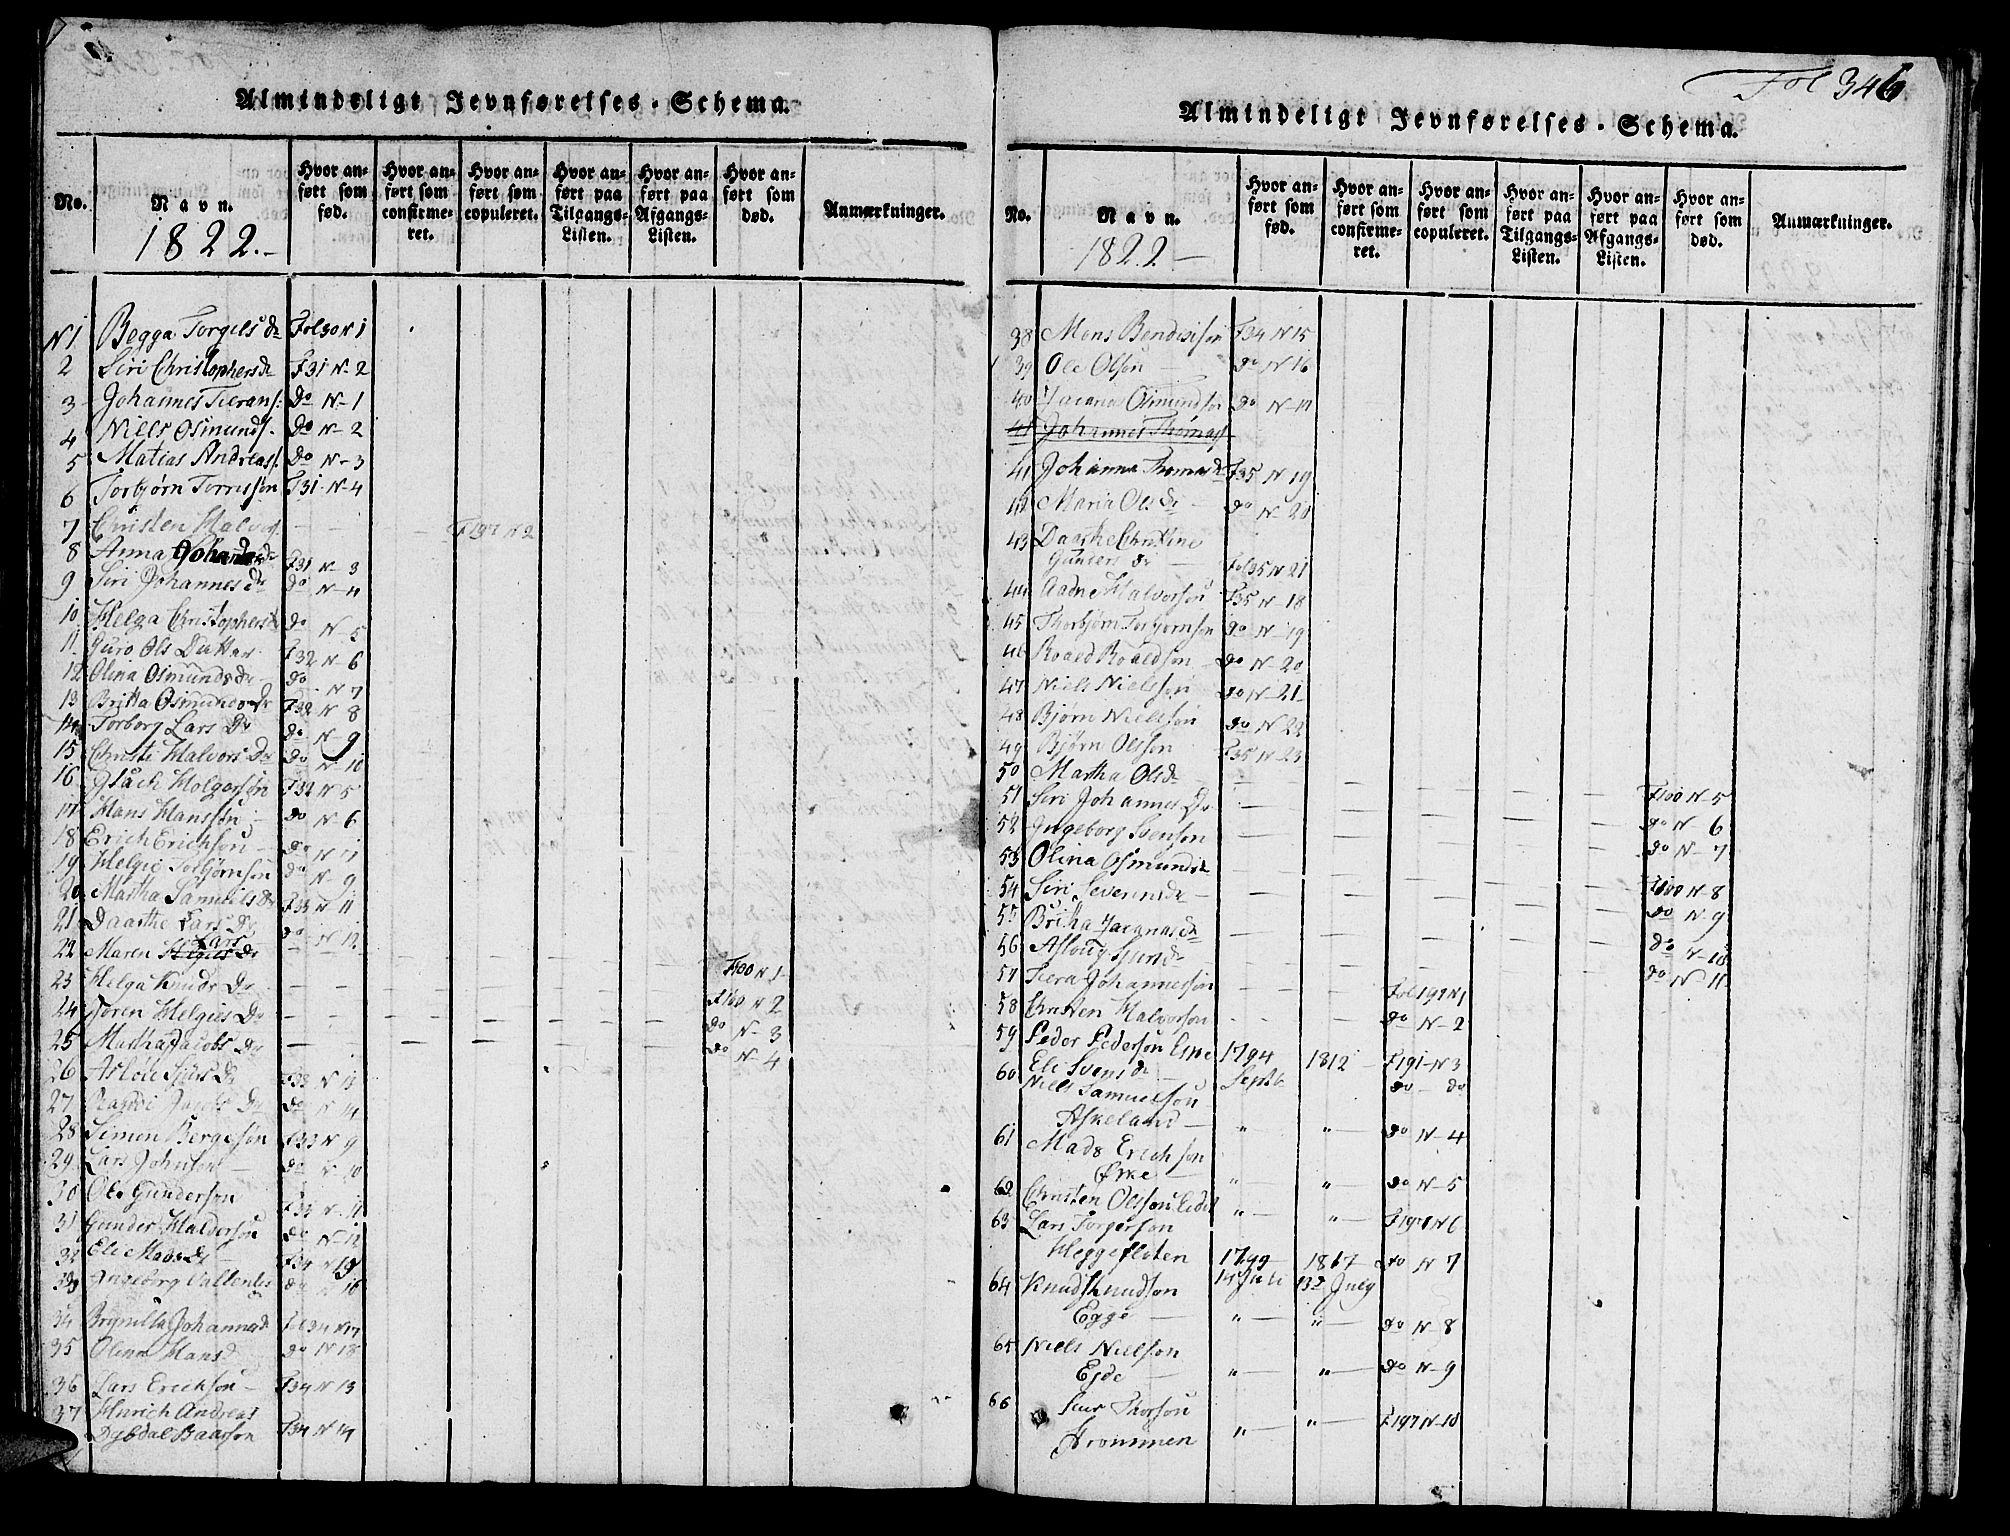 Almindeligt Jevnførelses-Schema.
No.
Navn.
1822.-
Hvor anført som fød.
Hvor anført som confirmeret.
Hvor anført som copuleret.
Hvor anført paa Tilgangs-Listen.
Hvor anført paa Afgangs-Listen.
Hvor anført som død.
Anmærkninger.
N1 Begga Torgels Dr Fol 30 N 1
2 Siri Christophersdr F31 N-2
3 Johannes Tierans: Do N-1
4 Niels Osmunds. Do N-2
5 Matias Andreas: Do N-3
6 Torbjørn Tormsson F31-N-4
7 Cristen Halvors. — — F197 N2
8 Anna Johannesdr F31 N-3
9 Siri Johannes dr Do N-4
10 Helga Christophersdr Do N-5
11 Guro Ols Datter F32 N-6
12 Olina Osmundsdr do N 7
13 Britta Osmunds Dr F32 N 8
14 Torborg Lars Dr Do N-9
15 Christi Halvors Dr Do N-10
16 Holgersøn F32 N 5
17 Hans Hanssøn do N-6
18 Erich Erichsøn do N 7
19 Helgie Torbjørnsøn do N-9
20 Martha Samuels Dr F33 N 11
21 Daarthe Lars Dr do N 12
22 Maren Lars dr — — — — — F100 N 1
23 Helga Knuds Dr — — — — — F100 N 2
24 Søren Helgies Dr — — — — — do N-3
25 Martha Jacobs Dr — — — — — do N-4
26 Asloe Sjurs Dr F33 N 13
27 Dr do N 14
28 Simon Bergesøn F33 N 9
29 Lars Johnsøn — do N 10
30 Ole Gundersøn F33 N-11
31 Gunder Halvorsøn do N-12
32 Eli Mons dr F34 N 15
33 Ingeborg do N 16
34 Johannesdr Fol 34 N17
35 Olina Hansd do N 18
36 Lars Erichsøn — F34 N 13
37 Hinrich Andreas
Dybdal Baarsøn F34 N 14
Fol 346
Almindeligt Jevnførelses-Schema.
No.
Navn.
1822 —
Hvor anført som fød.
Hvor anført som confirmeret.
Hvor anført som copuleret.
Hvor anført paa Tilgangs-Listen.
Hvor anført paa Afgangs-Listen.
Hvor anført som død.
Anmærkninger.
38 Mons Bendixsøn F34 N 15
39 Ole Olsøn — do N 16
40 Zacarias Osmundsøn do N-17
41 Johannes Thomas
41 Johanna Thomasdr F35 N 19
42 Maria Ols Dr — do N-20
43 Daarthe Christine
Gunders dr — Fol 35 N 21
44 Aadne Halvorsøn F35 N-18
45 Thorbjørn Torbjørnsøn do N-19
46 Roald Roaldsøn — do N-20
47 Niels Nielsøn — do N-21
48 Bjørn Nielsøn do N 22
49 Bjørn Olsøn F35 N-23
50 Martha Olsdr — — — — — F100 N-5
51 Siri Johannes Dr — — — — — do N-6
52 Ingeborg Svensøn — — — — — do N-7
53 Olina Osmundsdr — — — — — F100 N-8
54 Siri Severinsdr — — — — — do N-9
55 Britha Zacariasdr — — — — — do N-10
56 Aslaug Sjursdr — — — — — do N-11
57 Tiera Johannessøn — — Fol 197 N1
58 Christen Halvorsøn — — do N-2
59 Peder Pedersøn Eske 1794 1812 — F197-N3
60 Eli Svens dr — Septb do — do
Niels Samuelsøn
Askeland — " " — do N-4
61 Mads Erichsøn
Øske — " " — do N-5
62 Christen Olssøn Eide " — " — F197 N6
63 Lars Torgersøn
Heggefloten 1799 1817 do N 7
64 Knud Knudsøn 14 Juli 13 Julij
Egge — " — " — do N-8
65 Niels Nielsøn
Egde — " — " — do N-9
66 Siur Thorsøn
Frommen " — " — F197 N-10